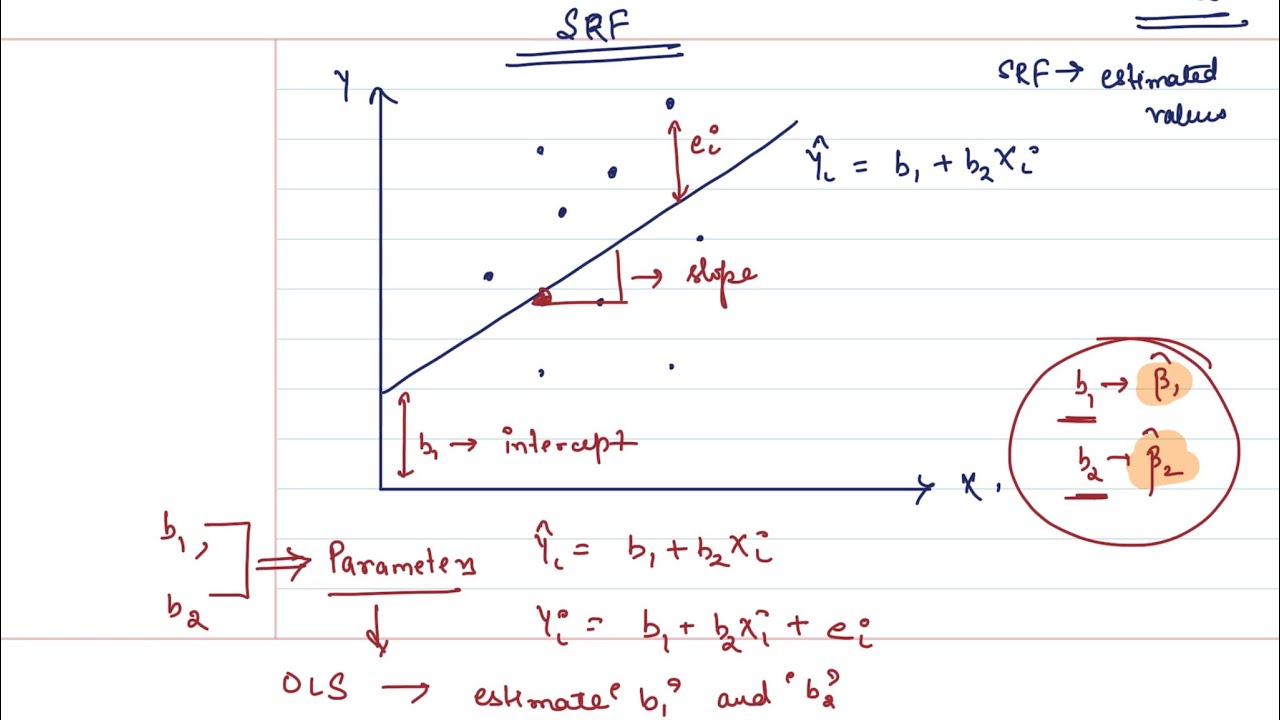 SRF
SRF → estimated
values
Y
eᵢ
Ŷᵢ = b₁ + b₂Xᵢ
→ slope
b₁ → β̂₁
b₁ → intercept
b₂ → β̂₂
X
b₁,
b₂
⇒ Parameters
Ŷᵢ = b₁ + b₂Xᵢ
Yᵢ = b₁ + b₂Xᵢ + eᵢ
OLS → estimate 'b₁' and 'b₂'